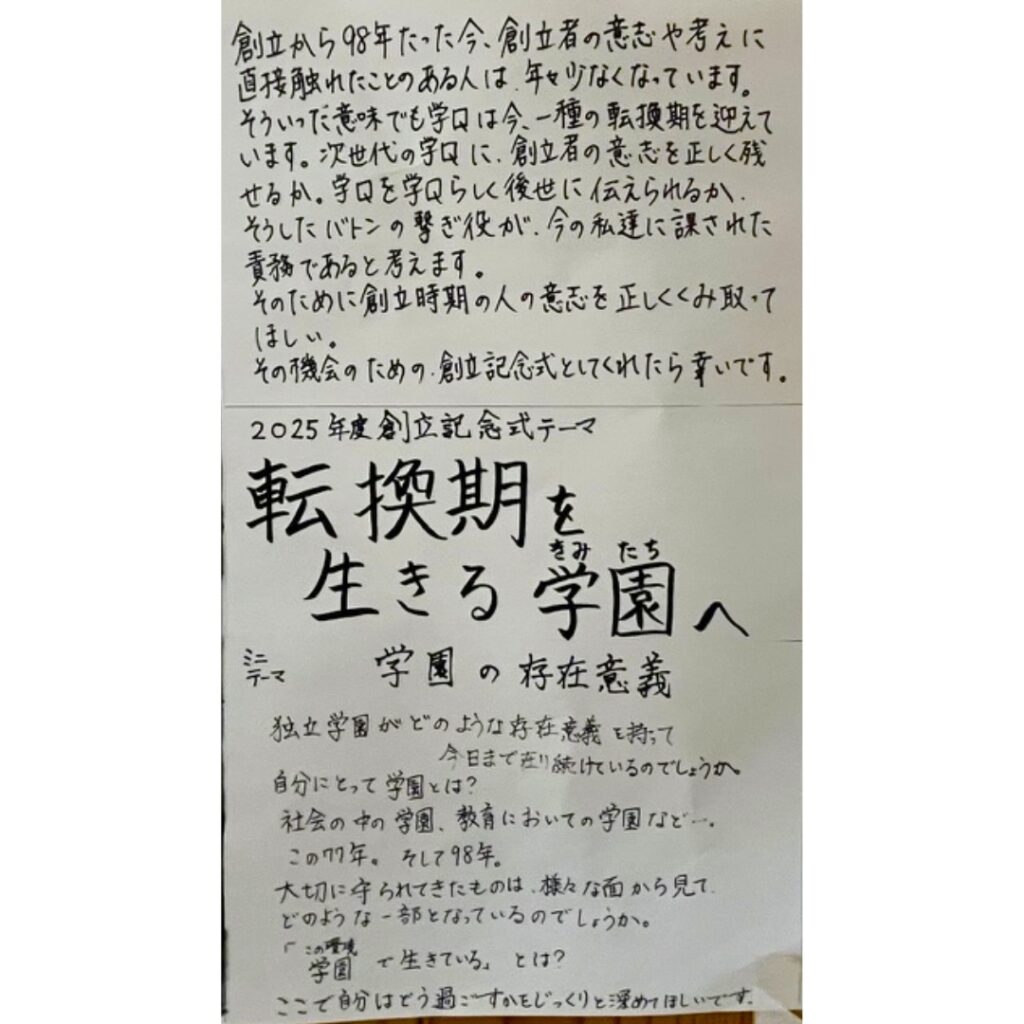 創立から98年たった今、創立者の意志や考えに
直接触れたことのある人は、年々少なくなっています。
そういった意味でも学Qは今、一種の転換期を迎えて
います。次世代の学Qに、創立者の意志を正しく残
せるか。学Qを学Qらしく後世に伝えられるか、
そうしたバトンの繋ぎ役が、今の私達に課された
責務であると考えます。
そのために創立時期の人の意志を正しくくみ取って
ほしい。
その機会のための、創立記念式としてくれたら幸いです。
2025年度創立記念式テーマ
転換期を
きみたち
生きる学園へ
ミニ
テーマ
学園の存在意義
独立学園がどのような存在意義を持って
今日まで在り続けているのでしょうか。
自分にとって学園とは?
社会の中の学園、教育においての学園など…。
この77年。そして98年。
大切に守られてきたものは、様々な面から見て、
どのような一部となっているのでしょうか。
この環境
「学園で生きている」とは?
ここで自分はどう過ごすかをじっくりと深めてほしいです。